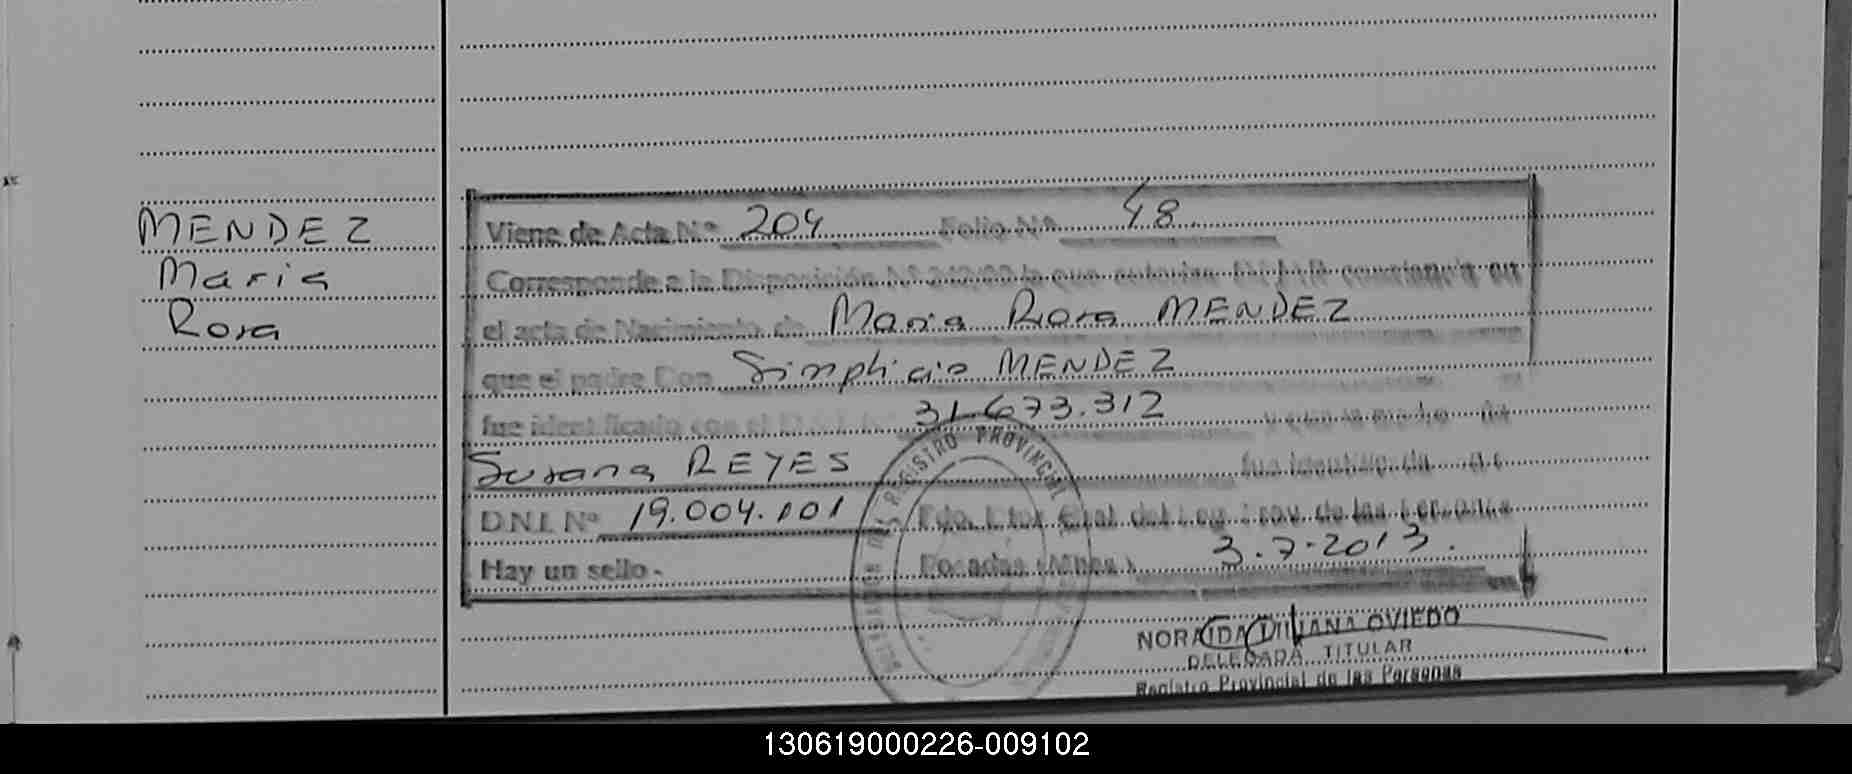 MENDEZ
Maria
Rosa
Viene de Acta Nº 204 Folio Nº 48
Corresponde a la Disposición Nº constancia en
el acta de Nacimiento de Maria Rosa MENDEZ
que el padre Don Simplicio MENDEZ
fue identificado con el D.N.I. Nº 31.673.312
Susana REYES fue identificada
D.N.I. Nº 19.004.101 Fdo. de las Personas
Hay un sello.- Posadas (Mnes.) 3.7.2013.
REGISTRO PROVINCIAL
NORAIDA LILIANA OVIEDO
DELEGADA TITULAR
Registro Provincial de las Personas
130619000226-009102